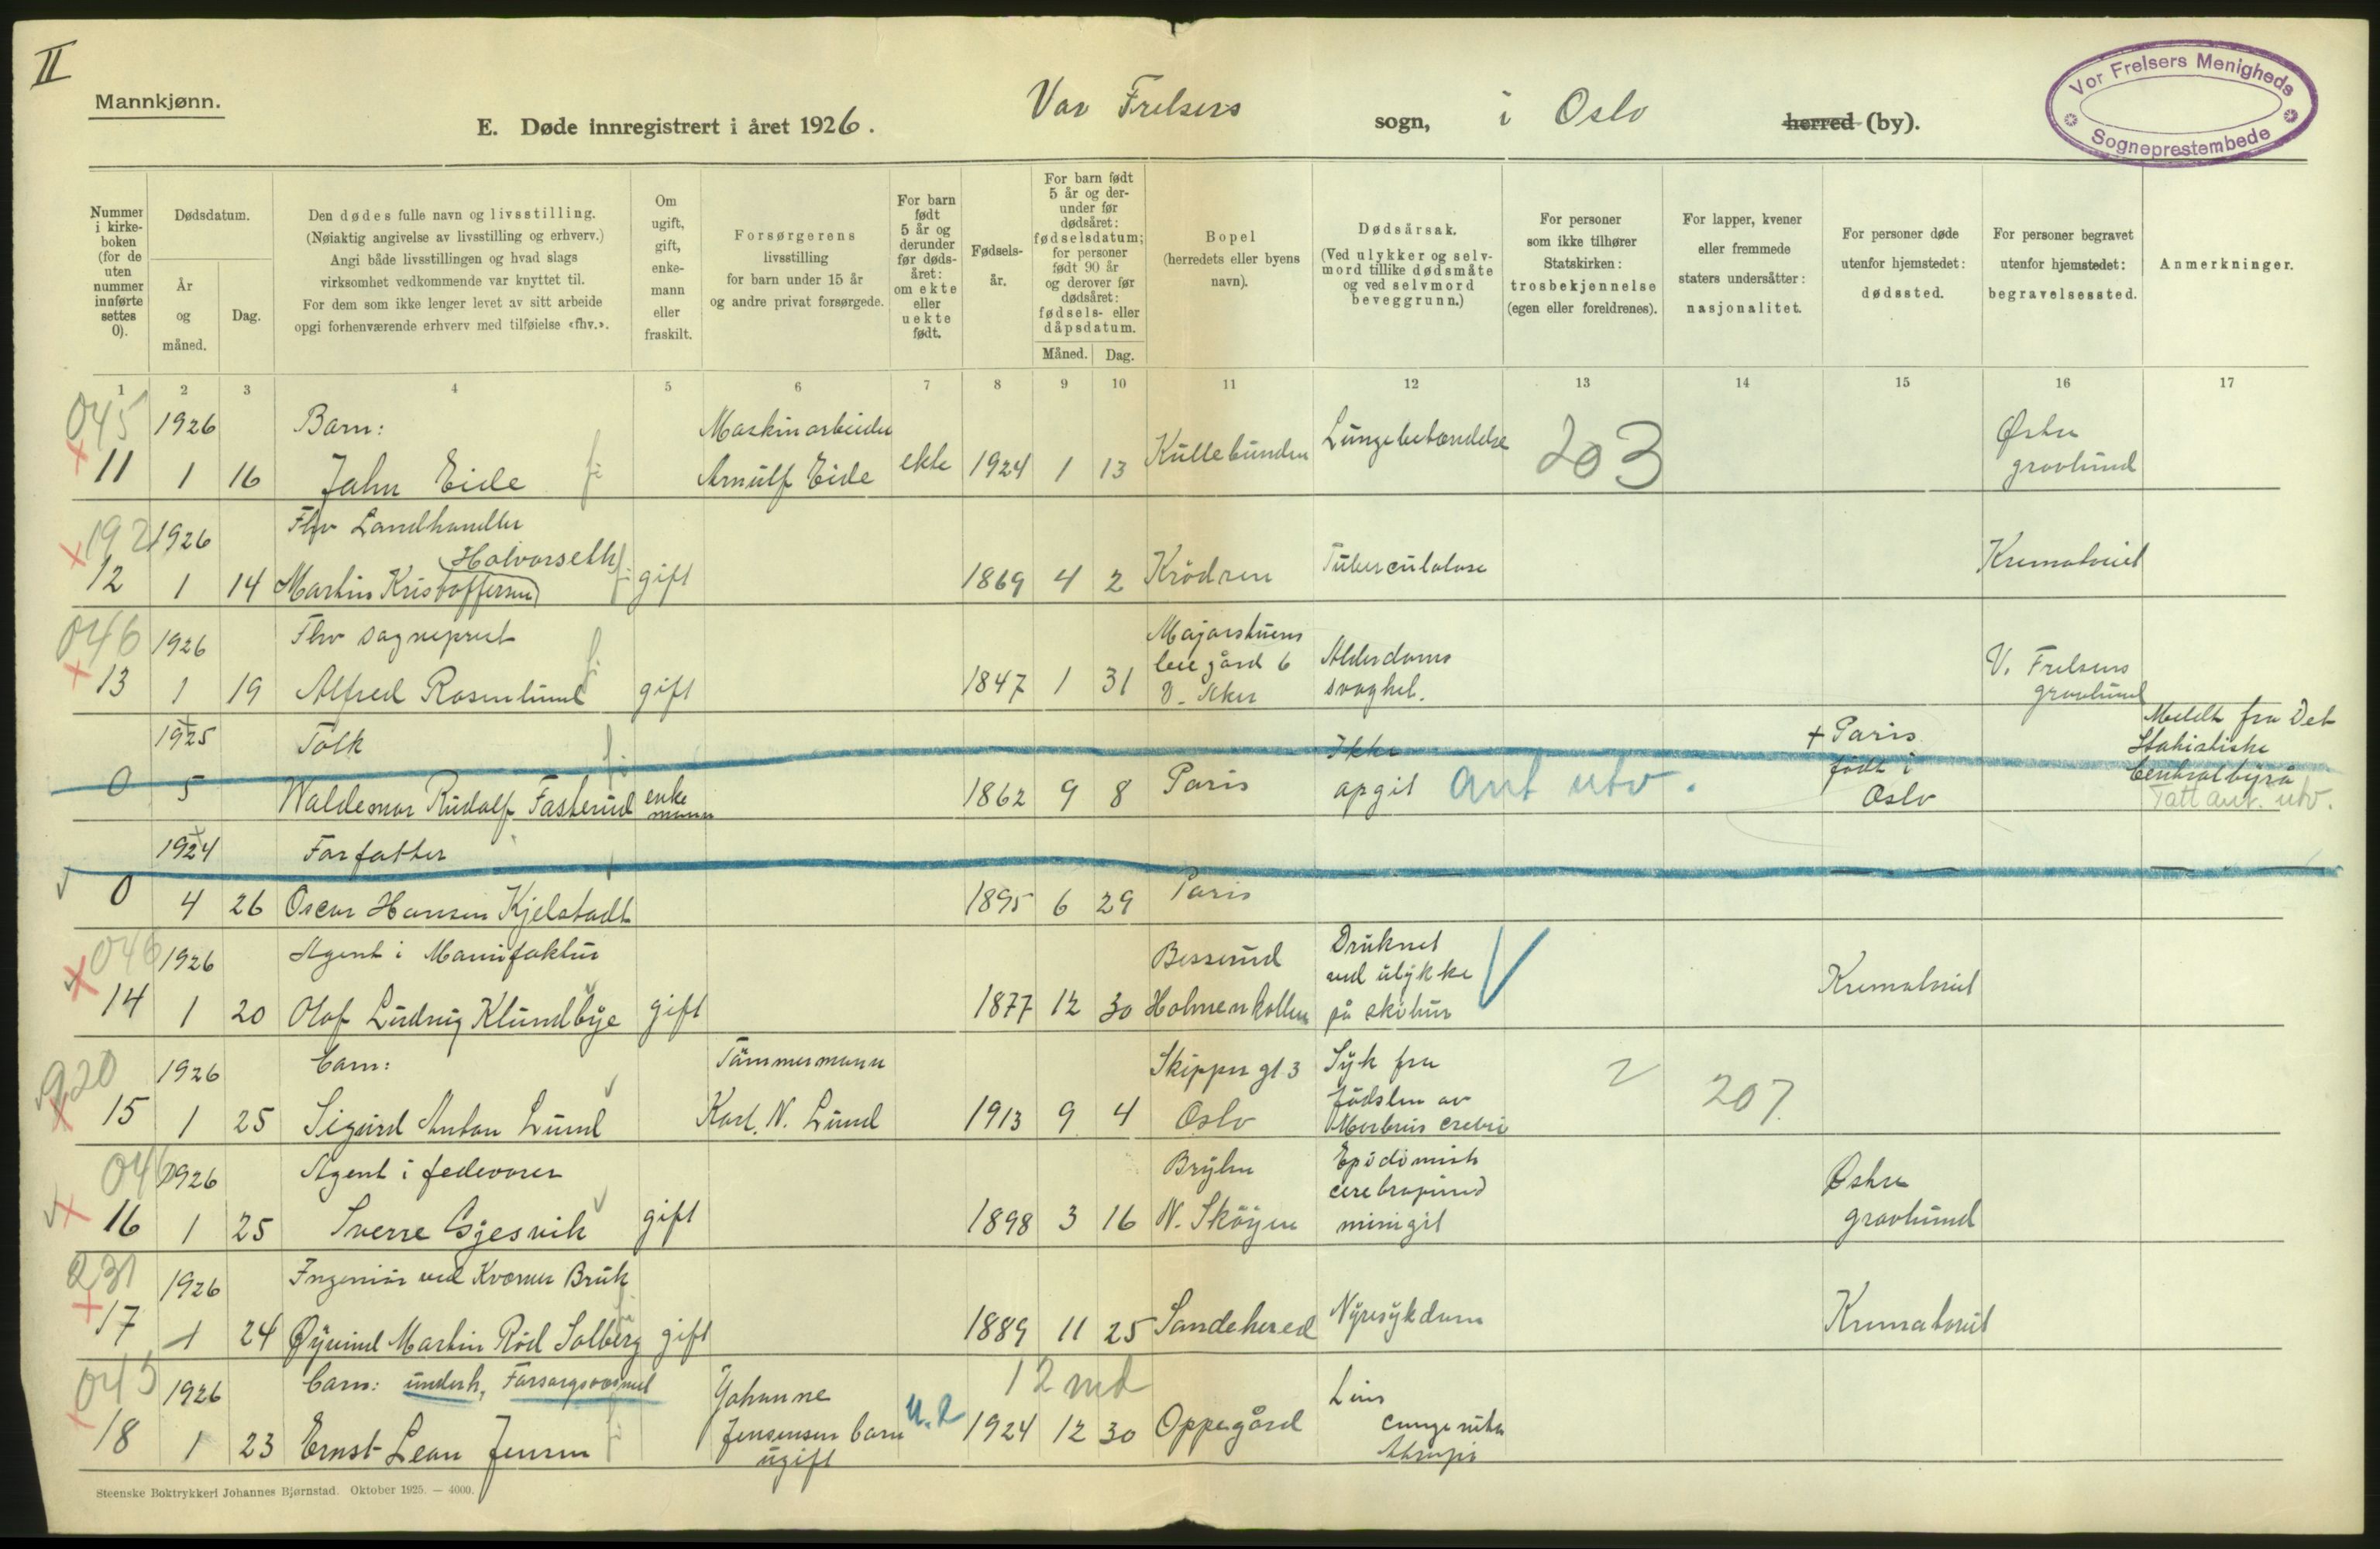 II
Mannkjønn.
E. Døde innregistrert i året 1926.
Vor Frelsers sogn, i Oslo herred (by).
Vor Frelsers Menigheds
Sogneprestembede
Nummer i kirkeboken (for de uten nummer innførte settes 0).
Dødsdatum.
År og måned.
Dag.
Den dødes fulle navn og livsstilling.
(Nøiaktig angivelse av livsstilling og erhverv.)
Angi både livsstillingen og hvad slags
virksomhet vedkommende var knyttet til.
For dem som ikke lenger levet av sitt arbeide
opgi forhenværende erhverv med tilføielse «fhv.».
Om ugift, gift, enkemann eller fraskilt.
Forsørgerens
livsstilling
for barn under 15 år
og andre privat forsørgede.
For barn født 5 år og derunder før dødsåret: om ekte eller uekte født.
Fødselsår.
For barn født 5 år og derunder før dødsåret: fødselsdatum; for personer født 90 år og derover før dødsåret: fødsels- eller dåpsdatum.
Måned.
Dag.
Bopel
(herredets eller byens
navn).
Dødsårsak.
(Ved ulykker og selvmord tillike dødsmåte og ved selvmord beveggrunn.)
For personer
som ikke tilhører
Statskirken:
trosbekjennelse
(egen eller foreldrenes).
For lapper, kvener
eller fremmede
staters undersåtter:
nasjonalitet.
For personer døde
utenfor hjemstedet:
dødssted.
For personer begravet
utenfor hjemstedet:
begravelsessted.
Anmerkninger.
1 2 3 4 5 6 7 8 9 10 11 12 13 14 15 16 17
045 1926 Barn: Maskinarbeider Lungebetændelse 203 Østre
11 1 16 John Eide Arnulf Eide ekte 1924 1 13 Kullebunden gravlund
192 1926 Fhv Landhandler
Halvorseth
12 1 14 Martin Kristoffersen gift 1869 4 2 Krödren Tuberculolose Krematoriet
046 1926 Fhv sogneprest Majorstuens
leiegård 6 Alderdoms V. Frelsers
13 1 19 Alfred Rosenlund gift 1847 1 31 V. Aker svaghet. gravlund
1925 Tolk Ikke + Paris Meldt fra Det
Statistiske
født i Centralbyrå
0 5 Waldemar Rudolf Fasterud enke mann 1862 9 8 Paris opgit ant utv. Oslo Tatt ant. utv.
1924 Forfatter
0 4 26 Oscar Hansen Kjelstadt 1895 6 29 Paris
046 1926 Agent i Manufaktur Besserud Druknet
ved ulykke Krematoriet
14 1 20 Olaf Ludvig Klundbye gift 1877 12 30 Holmenkollen på skitur
920 1926 Barn: Tømmermann Skipper gt 3 Syk fra 2 207
fødslen av
15 1 25 Sigurd Anton Lund Karl. N. Lund 1913 9 4 Oslo Morbus crebri
1926 Agent i fedevarer Bryhn Epidimisk Østre
16 1 25 Sverre Gjesvik gift 1898 3 16 N. Skøyen gravlund
231 1926 Ingeniør ved Kværner Bruk
17 1 24 Øyvind Martin Rød Solberg gift 1889 11 25 Sandehered Nyresykdom Krematoriet
045 1926 Barn: underh. Johanne 12 md
18 1 23 Ernst Leon Jensen Jensensen barn U. E 1924 12 30 Oppegård
ugift
Steenske Boktrykkeri Johannes Bjørnstad. Oktober 1925. — 4000.